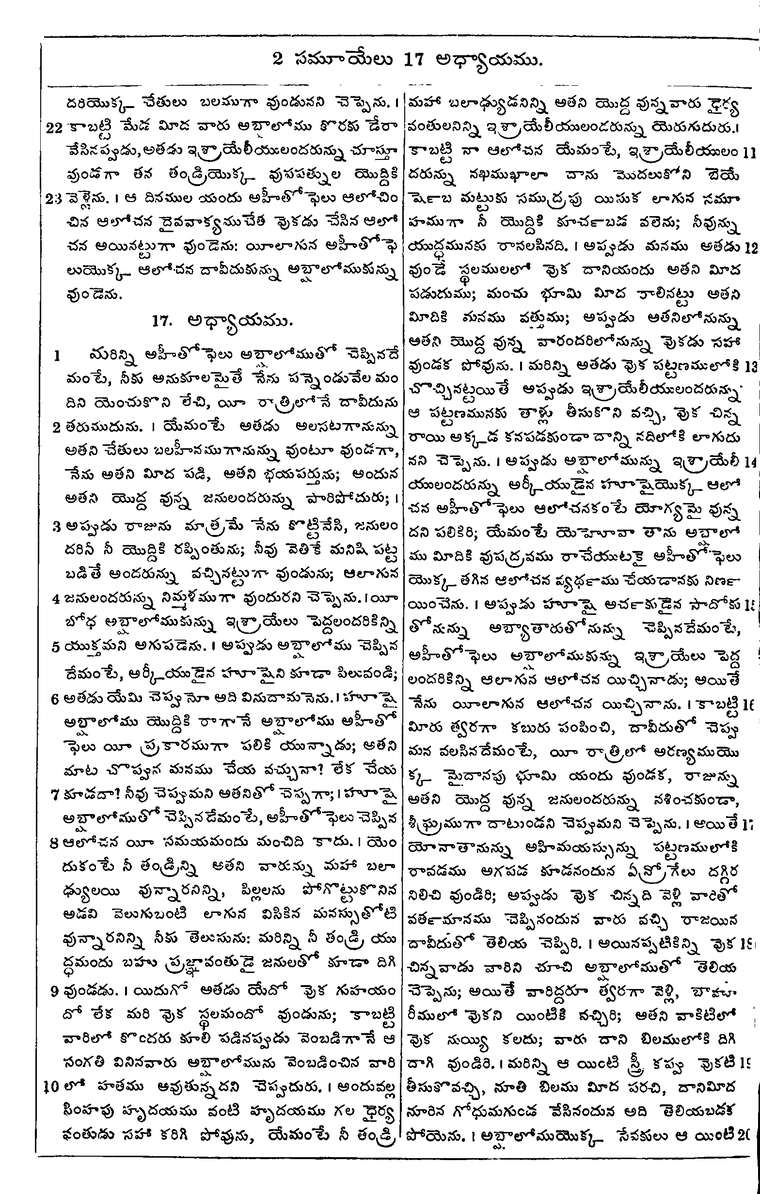 2 సమూయేలు 17 అధ్యాయము.
దరియొక్క చేతులు బలముగా వుండునని చెప్పెను. ।
22 కాబట్టి మేడ మీద వారు అబ్షాలోము కొరకు డేరా
వేసినప్పుడు, అతడు ఇశ్రాయేలీయులందరున్ను చూస్తూ
వుండగా తన తండ్రియొక్క వుపపత్నుల యొద్దికి
23 వెళ్లెను. । ఆ దినముల యందు అహీతోఫెలు ఆలోచిం
చిన ఆలోచన దైవవాక్యముచేత వొకడు చేసిన ఆలో
చన అయినట్టుగా వుండెను: యీలాగున అహీతోఫె
లుయొక్క ఆలోచన దావీదుకున్ను అబ్షాలోముకున్ను
వుండెను.
17. అధ్యాయము.
1 మరిన్ని అహీతోఫెలు అబ్షాలోముతో చెప్పినదే
మంటే, నీకు అనుకూలమైతే నేను పన్నెండువేల మం
దిని యెంచుకొని లేచి, యీ రాత్రిలోనే దావీదును
2 తరుముదును. । యేమంటే అతడు అలసటగానున్ను
అతని చేతులు బలహీనముగానున్ను వుంటూ వుండగా,
నేను అతని మీద పడి, అతని భయపర్తును; అందున
అతని యొద్ద వున్న జనులందరున్ను పారిపోదురు; ।
3 అప్పుడు రాజును మాత్రమే నేను కొట్టివేసి, జనులం
దరినీ నీ యొద్దికి రప్పింతును; నీవు వెతికే మనిషి పట్ట
బడితే అందరున్ను వచ్చినట్టుగా వుండును; ఆలాగున
4 జనులందరున్ను నిమ్మళముగా వుందురని చెప్పెను. । యీ
బోధ అబ్షాలోముకున్ను ఇశ్రాయేలు పెద్దలందరికిన్ని
5 యుక్తమని అగుపడెను. । అప్పుడు అబ్షాలోము చెప్పిన
దేమంటే, అర్కీయుడైన హూషైని కూడా పిలువండి;
6 అతడు యేమి చెప్పునో అది విందామనెను. । హూషై
అబ్షాలోము యొద్దికి రాగానే అబ్షాలోము అహీతో
ఫెలు యీ ప్రకారముగా పలికి యున్నాడు; అతని
మాట చొప్పున మనము చేయ వచ్చునా? లేక చేయ
7 కూడదా? నీవు చెప్పుమని అతనితో చెప్పగా; । హూషై
అబ్షాలోముతో చెప్పినదేమంటే, అహీతోఫెలు చెప్పిన
8 ఆలోచన యీ సమయమందు మంచిది కాదు. । యెం
దుకంటే నీ తండ్రిన్ని అతని వారున్ను మహా బలా
ఢ్యులయి వున్నారనిన్ని, పిల్లలను పోగొట్టుకొనిన
అడవి వెలుగుబంటి లాగున విసికిన మనస్సుతోటి
వున్నారనిన్ని నీకు తెలుసును: మరిన్ని నీ తండ్రి యు
ద్ధమందు బహు ప్రజ్ఞావంతుడై జనులతో కూడా దిగి
9 వుండడు. । యిదుగో అతడు యేదో వొక గుహయం
దో లేక మరి వొక స్థలమందో వుండును; కాబట్టి
వారిలో కొందరు కూలి పడినప్పుడు వెంబడిగానే ఆ
సంగతి వినినవారు అబ్షాలోమును వెంబడించిన వారి
10 లో హతము అవుతున్నదని చెప్పుదురు. । అందువల్ల
సింహపు హృదయము వంటి హృదయము గల ధైర్య
వంతుడు సహా కరిగి పోవును, యేమంటే నీ తండ్రి
మహా బలాఢ్యుడనిన్ని అతని యొద్ద వున్నవారు ధైర్య
వంతులనిన్ని ఇశ్రాయేలీయులందరున్ను యెరుగుదురు. ।
కాబట్టి నా ఆలోచన యేమంటే, ఇశ్రాయేలీయులం 11
దరున్ను నఖముఖాలా దాను మొదలుకోని బెయే
ర్షెబా మట్టుకు సముద్రపు యిసుక లాగున సమూ
హముగా నీ యొద్దికి కూర్చబడ వలెను; నీవున్ను
యుద్ధమునకు రావలసినది. । అప్పుడు మనము అతడు 12
వుండే స్థలములలో వొక దానియందు అతని మీద
పడుదుము; మంచు భూమి మీద రాలినట్టు అతని
మీదికి మనము వత్తుము; అప్పుడు అతనిలోనున్ను
అతని యొద్ద వున్న వారందరిలోనున్ను వొకడు సహా
వుండక పోవును. । మరిన్ని అతడు వొక పట్టణములోకి 13
చొచ్చినట్టయితే అప్పుడు ఇశ్రాయేలీయులందరున్ను
ఆ పట్టణమునకు తాళ్లు తీసుకొని వచ్చి, వొక చిన్న
రాయి అక్కడ కనపడకుండా దాన్ని నదిలోకి లాగుదు
నని చెప్పెను. । అప్పుడు అబ్షాలోమున్ను ఇశ్రాయేలీ 14
యులందరున్ను అర్కీయుడైన హూషైయొక్క ఆలో
చన అహీతోఫెలు ఆలోచనకంటే యోగ్యమై వున్న
దని పలికిరి; యేమంటే యెహోవా తాను అబ్షాలో
ము మీదికి వుపద్రవము రాచేయుటకై అహీతోఫెలు
యొక్క తగిన ఆలోచన వ్యర్థము చేయడానకు నిర్ణ
యించెను. । అప్పుడు హూషై అర్చకుడైన సాదోకు 15
తోనున్ను అబ్యాతారుతోనున్ను చెప్పినదేమంటే,
అహీతోఫెలు అబ్షాలోముకున్ను ఇశ్రాయేలు పెద్ద
లందరికిన్ని ఆలాగున ఆలోచన యిచ్చినాడు; అయితే
నేను యీలాగున ఆలోచన యిచ్చినాను. । కాబట్టి 16
మీరు త్వరగా కబురు పంపించి, దావీదుతో చెప్ప
మన వలసినదేమంటే, యీ రాత్రిలో అరణ్యముయొ
క్క మైదానపు భూమి యందు వుండక, రాజున్ను
అతని యొద్ద వున్న జనులందరున్ను నశించకుండా,
శీఘ్రముగా దాటుండని చెప్పుమని చెప్పెను. । అయితే 17
యోనాతానున్ను అహిమయస్సున్ను పట్టణములోకి
రావడము అగపడ కూడనందున ఏన్రోగేలు దగ్గిర
నిలిచి వుండిరి; అప్పుడు వొక చిన్నది వెళ్లి వారితో
వర్తమానము చెప్పినందున వారు వచ్చి రాజయిన
దావీదుతో తెలియ చెప్పిరి. । అయినప్పటికిన్ని వొక 18
చిన్నవాడు వారిని చూచి అబ్షాలోముతో తెలియ
చెప్పెను; అయితే వారిద్దరూ త్వరగా వెళ్లి, బాహూ
రీములో వొకని యింటికి వచ్చిరి; అతని వాకిటిలో
వొక నుయ్యి కలదు; వారు దాని బిలములోకి దిగి
దాగి వుండిరి. । మరిన్ని ఆ యింటి స్త్రీ కప్పు వొకటి 19
తీసుకొవచ్చి, నూతి బిలము మీద పరచి, దానిమీద
నూరిన గోధుమగుండ వేసినందున అది తెలియబడక
పోయెను. । అబ్షాలోముయొక్క సేవకులు ఆ యింటి 20